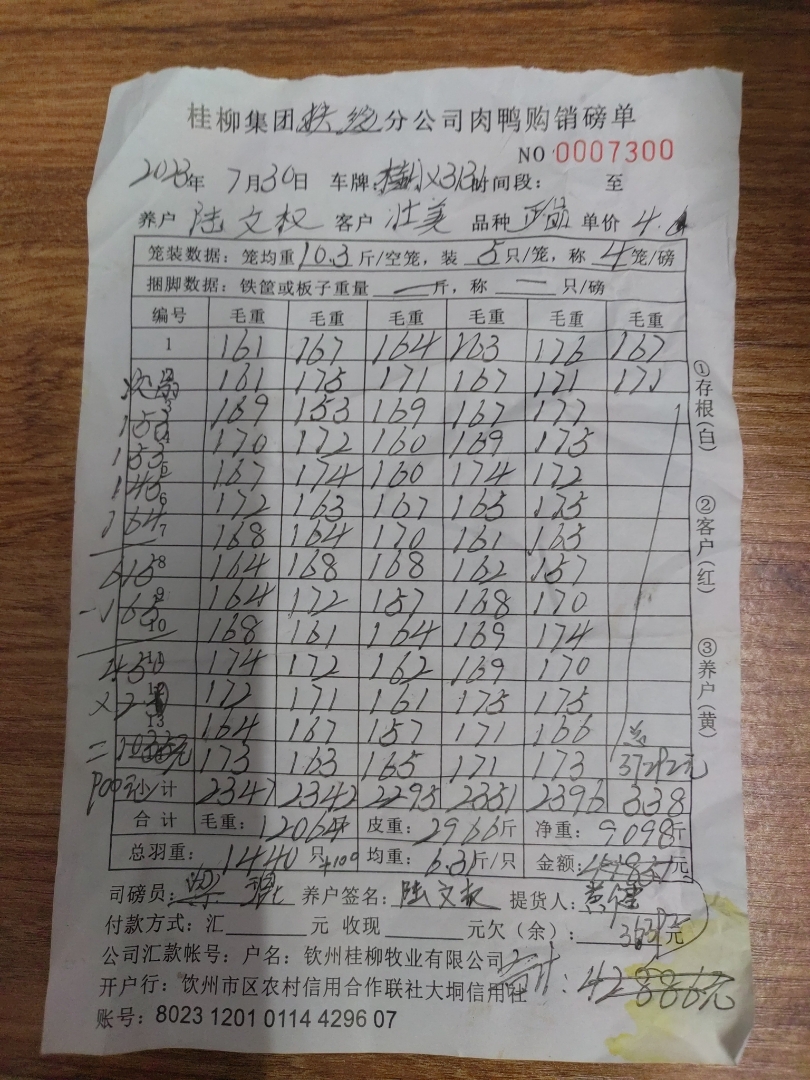 桂柳集团 分公司肉鸭购销磅单
NO 0007300
2023年 7月30日 车牌: 时间段: 至
养户 陆文权 客户 壮美 品种 单价 4.
笼装数据: 笼均重 10.3 斤/空笼, 装 5 只/笼, 称 4 笼/磅
捆脚数据: 铁筐或板子重量 — 斤, 称 — 只/磅
编号 毛重 毛重 毛重 毛重 毛重 毛重
1 161 167 164 163 176 167
2 161 175 171 167 171 171
3 169 153 169 167 177
4 170 172 160 169 175
5 167 174 160 174 172
6 172 163 167 165 175
7 168 164 170 161 165
8 164 168 168 162 157
9 164 172 157 168 170
10 168 161 164 169 174
11 174 172 162 169 170
12 172 171 161 175 175
13 164 167 157 171 166 总
173 163 165 171 173 37292元
小计 2347 2342 2295 2351 2396 338
合计 毛重: 12064斤 皮重: 2966斤 净重: 9098斤
总羽重: 1440只 +100 均重: 6.31斤/只 金额: 元
司磅员: 养户签名: 陆文权 提货人:
付款方式: 汇 元 收现 元欠(余): 元
公司汇款帐号: 户名: 钦州桂柳牧业有限公司
开户行: 钦州市区农村信用合作联社大垌信用社
合计: 42886元
账号: 8023 1201 0114 4296 07
153
153
145
164
615
-165
450
①存根(白)
②客户(红)
③养户(黄)